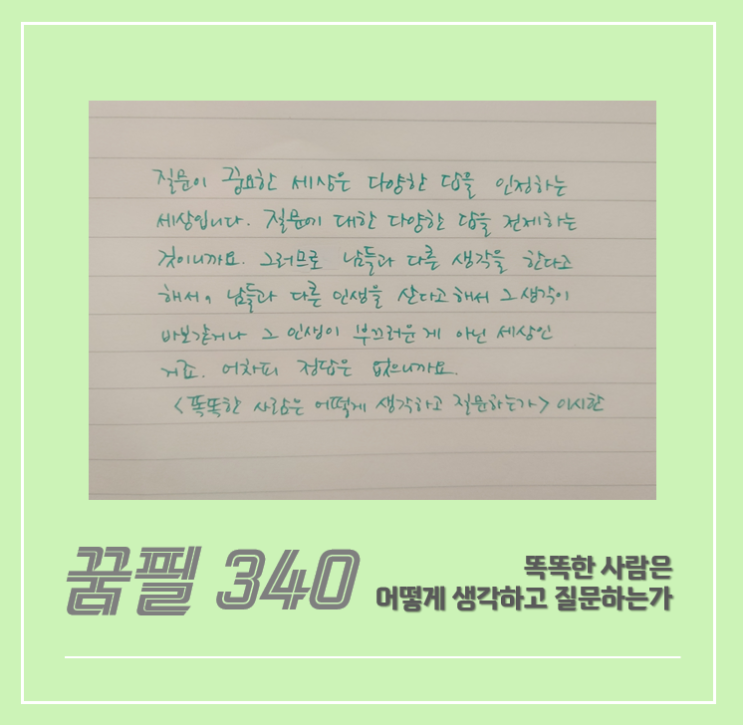 질문이 중요한 세상은 다양한 답을 인정하는
세상입니다. 질문에 대한 다양한 답을 전제하는
것이니까요. 그러므로 남들과 다른 생각을 한다고
해서, 남들과 다른 인생을 산다고 해서 그 생각이
바보같거나 그 인생이 부끄러운 게 아닌 세상인
거죠. 어차피 정답은 없으니까요.
<똑똑한 사람은 어떻게 생각하고 질문하는가> 이시한
꿈필 340
똑똑한 사람은
어떻게 생각하고 질문하는가